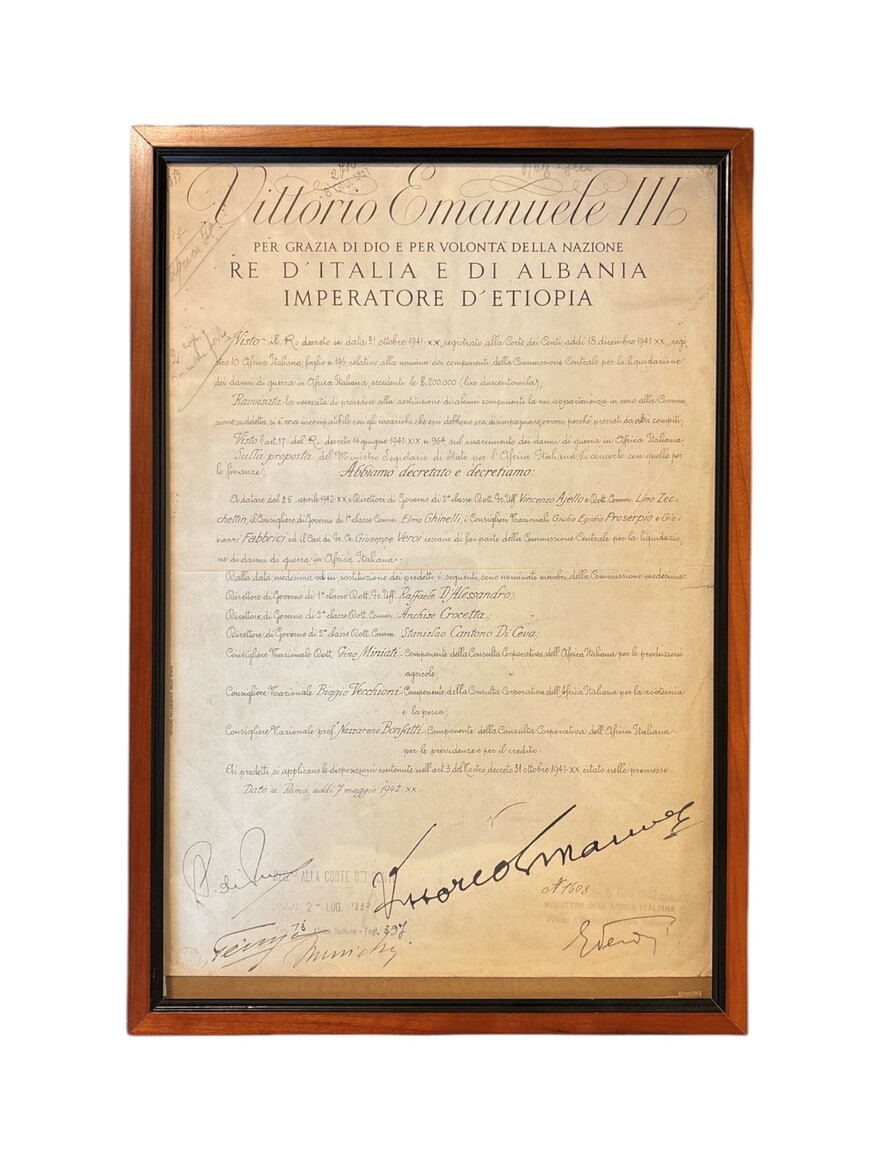 Vittorio Emanuele III
PER GRAZIA DI DIO E PER VOLONTÀ DELLA NAZIONE
RE D'ITALIA E DI ALBANIA
IMPERATORE D'ETIOPIA
Visto il R. decreto in data 31 ottobre 1941-XX, registrato alla Corte dei Conti addì 18 dicembre 1941 XX, regi
stro 10 Africa Italiana, foglio n 196, relativo alla nomina dei componenti della Commissione Centrale per la liquidazione
dei danni di guerra in Africa Italiana, eccedenti le £. 200.000 (lire duecentomila);
Ravvisata la necessità di procedere alla sostituzione di alcuni componenti la cui appartenenza in seno alla Commis
sione suddetta, si è resa incompatibile con gli incarichi che essi debbono ora disimpegnare, ovvero perchè pressati da altri compiti;
Visto l'art. 17 del R. decreto 14 giugno 1941-XIX n. 964, sul risarcimento dei danni di guerra in Africa Italiana;
Sulla proposta del Ministro Segretario di Stato per l'Africa Italiana, di concerto con quello per
le finanze;
Abbiamo decretato e decretiamo:
A datare dal 25 aprile 1942-XX i Direttori di Governo di 2ª classe Dott. Gr. Uff. Vincenzo Ajello e Dott. Comm. Lino Zec-
chettin, il Consigliere di Governo di 1ª classe Comm. Elmo Ghinelli, i Consiglieri Nazionali Giulio Egidio Proserpio e Gio
vanni Fabbrici ed il Cav. di Gr. Cr. Giuseppe Veroi cessano di far parte della Commissione Centrale per la liquidazio
ne di danni di guerra in Africa Italiana.-
Dalla data medesima ed in sostituzione dei predetti, i seguenti sono nominati membri della Commissione medesima:
Direttore di Governo di 1ª classe Dott. Gr. Uff. Raffaele D'Alessandro;
Direttore di Governo di 2ª classe Dott. Comm. Anchise Crocetta;
Direttore di Governo di 2ª classe Dott. Comm. Stanislao Cantono Di Ceva;
Consigliere Nazionale Dott. Gino Miniati - Componente della Consulta Corporativa dell'Africa Italiana per le produzioni
agricole;
Consigliere Nazionale Biagio Vecchioni - Componente della Consulta Corporativa dell'Africa Italiana per la zootecnia
e la pesca;
Consigliere Nazionale prof. Nazzareno Bonfatti - Componente della Consulta Corporativa dell'Africa Italiana
per le previdenze e per il credito.
Ai predetti si applicano le disposizioni contenute nell'art. 3 del Nostro decreto 31 ottobre 1941-XX citato nelle premesse.
Dato a Roma, addì 7 maggio 1942-XX
Vittorio Emanuele
ALLA CORTE DEI
2 - LUG.
Africa Italiana - Fogl. 397
N 1608
MINISTERO DELL'AFRICA ITALIANA